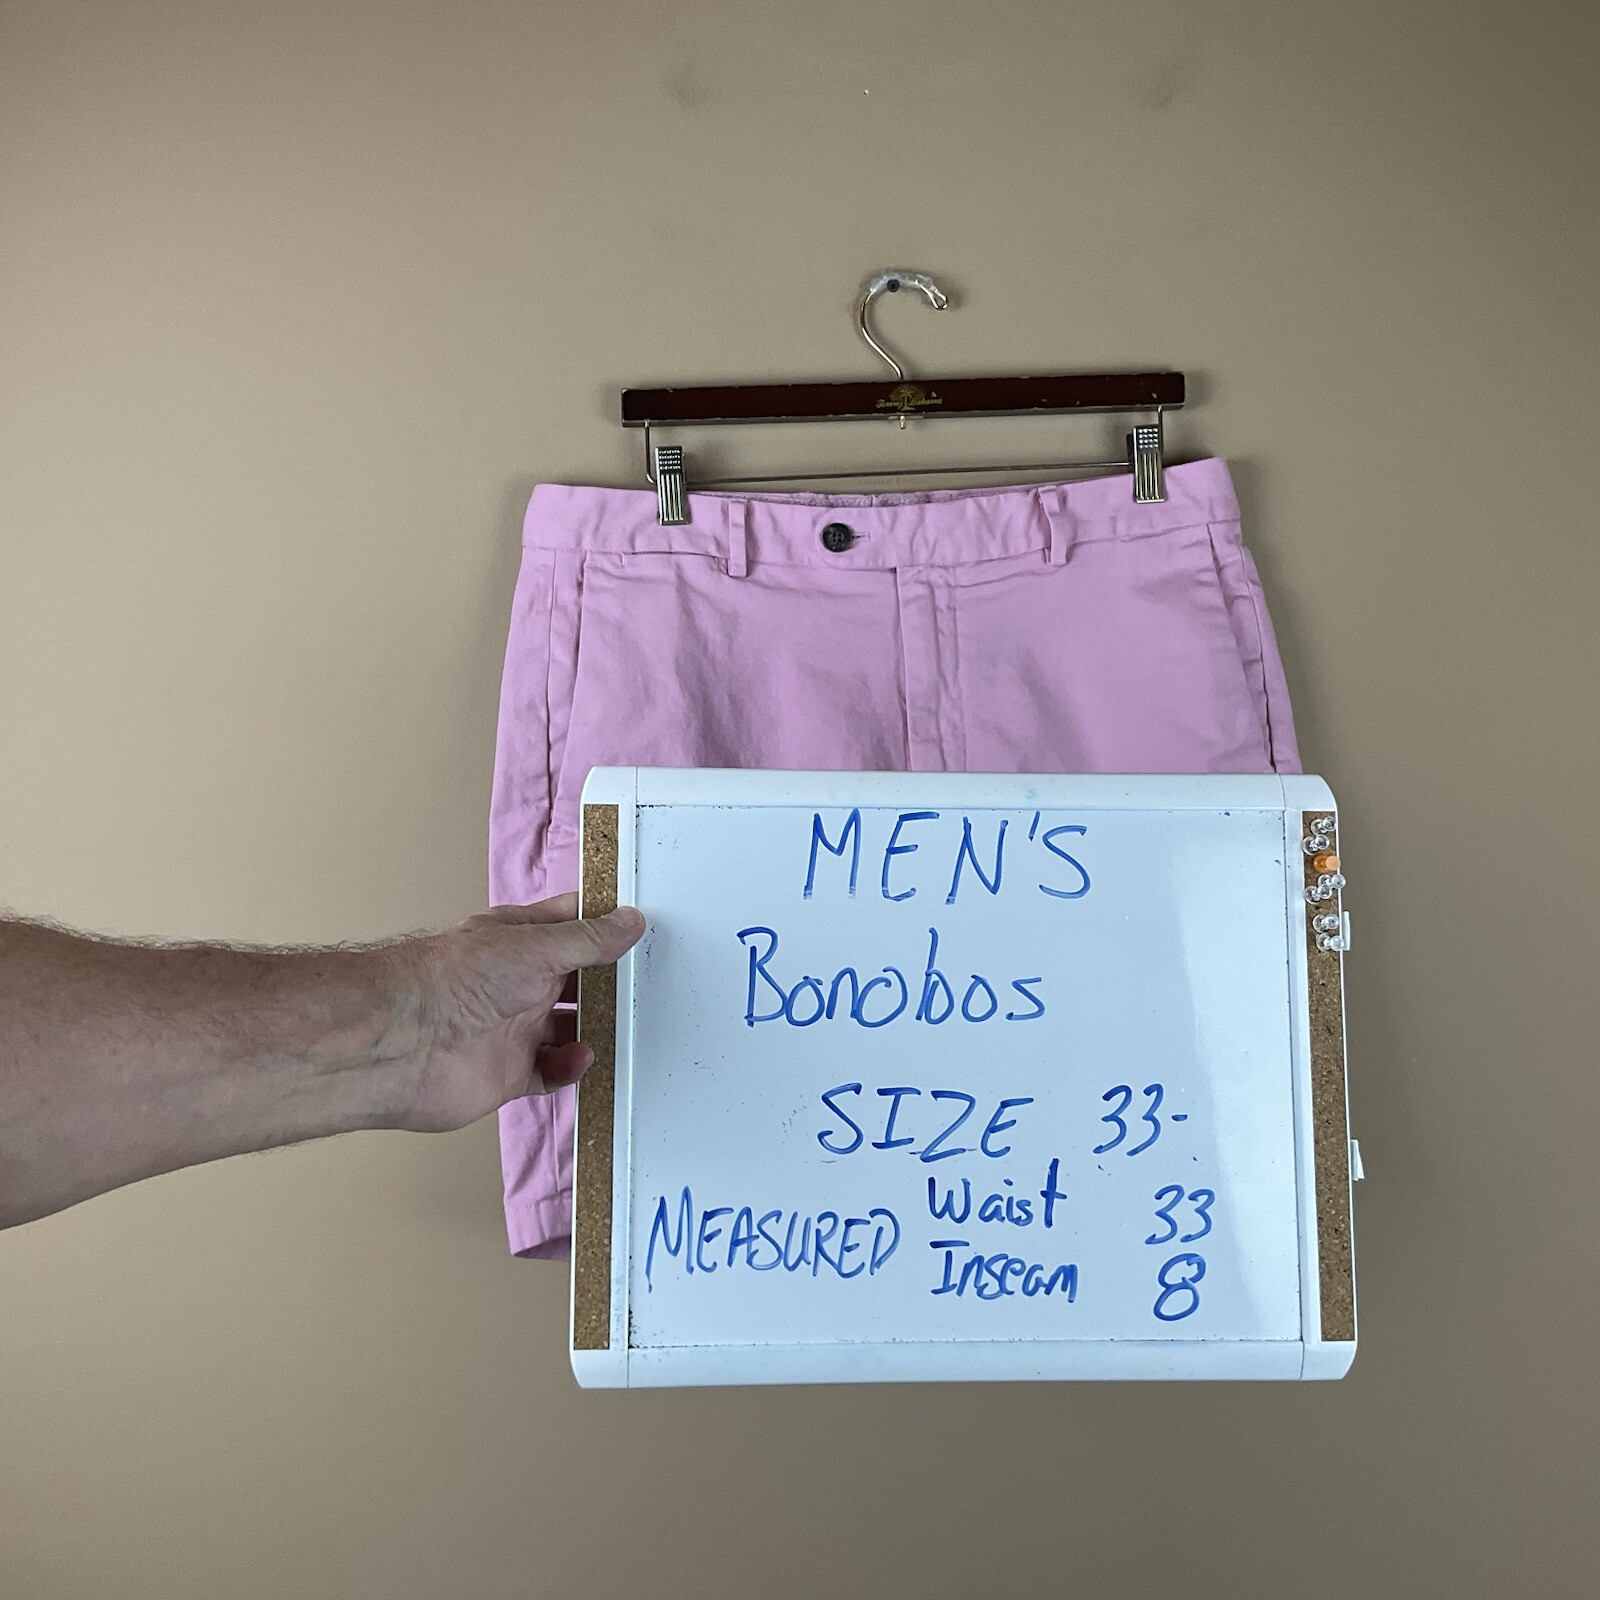 Tommy Bahama
MEN'S
Bonobos
SIZE 33-
MEASURED Waist 33
Inseam 8